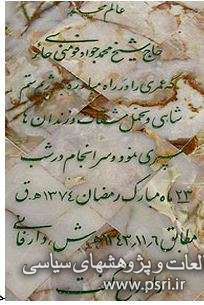 عالم مجاهد
حاج شیخ محمد جواد فومنی حائری
که عمری را در راه مبارزه با رژیم ستم
شاهی و تحمل مشقات و زندان ها
سپری نمود و سرانجام در شب
۲۳ ماه مبارک رمضان ۱۳۷۴ ه.ق
مطابق ۱۳۴۳/۱۱/۶ ه ش دار فانی
لعات و پژوهشهای سیاسی
www.psri.ir